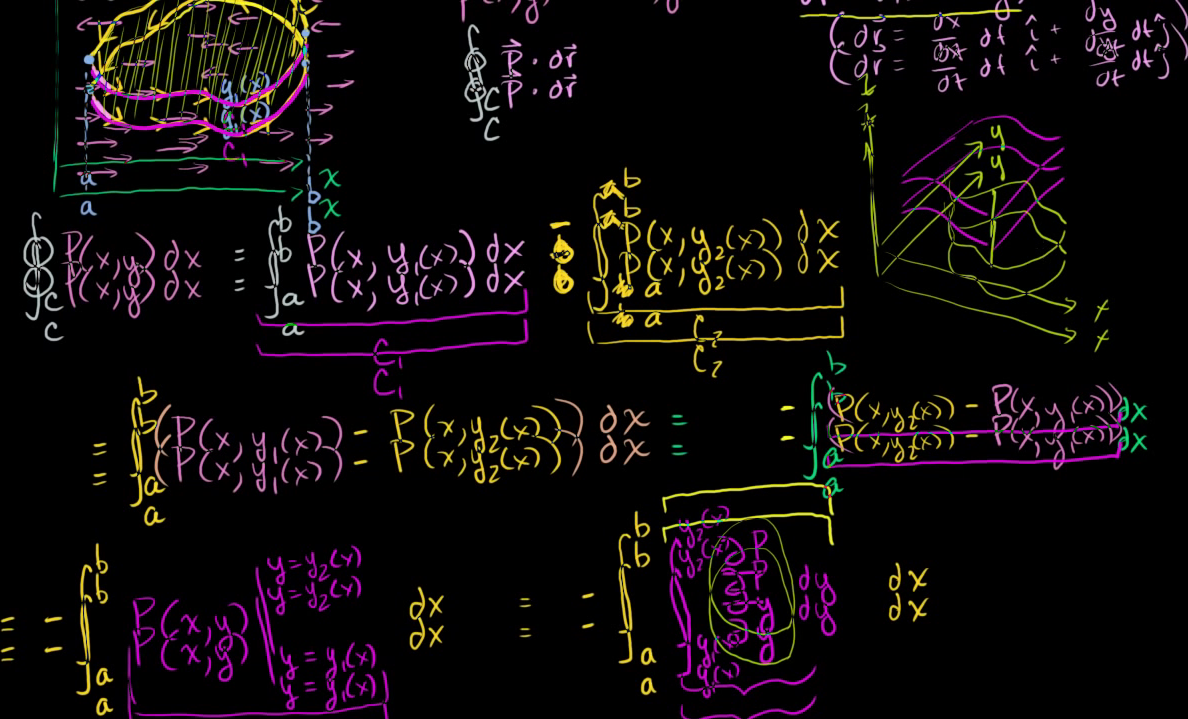 ∮_C P⃗ · dr⃗
(dr⃗ = dx/dt dt î + dy/dt dt ĵ)
y₁(x)
y
C₁
a b x
x
∮_C P(x,y) dx = ∫_a^b P(x, y₁(x)) dx - ∫_a^b P(x, y₂(x)) dx
C₁ C₂
= ∫_a^b (P(x, y₁(x)) - P(x, y₂(x))) dx = - ∫_a^b (P(x, y₂(x)) - P(x, y₁(x))) dx
= - ∫_a^b P(x,y) |_{y = y₁(x)}^{y = y₂(x)} dx = - ∫_a^b ∫_{y₁(x)}^{y₂(x)} ∂P/∂y dy dx